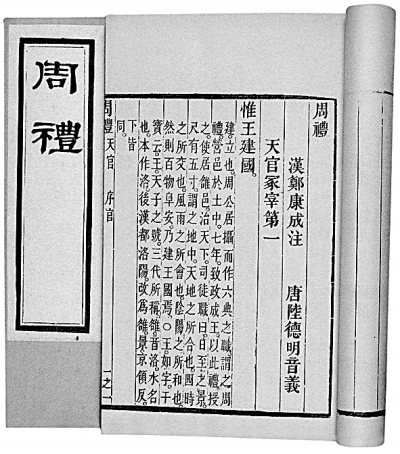 周禮
周禮
漢鄭康成注 唐陸德明音義
天官冢宰第一
惟王建國。
建立也。周公居攝而作六典之職謂之周
禮。營邑於土中。七年。致政成王。以此禮授
之。使居雒邑。治天下。司徒職曰。日至之景。
尺有五寸。謂之地中。天地之所合也。四時
之所交也。風雨之所會也。陰陽之所和也。
然則百物阜安。乃建王國焉。○王。如字。干
寶云。王。天子之號。三代所稱。雒。音洛。水名
也。本作洛。後漢都洛陽。改爲雒。景。京領反。
下皆
同。
周禮 天官 序官 一之一